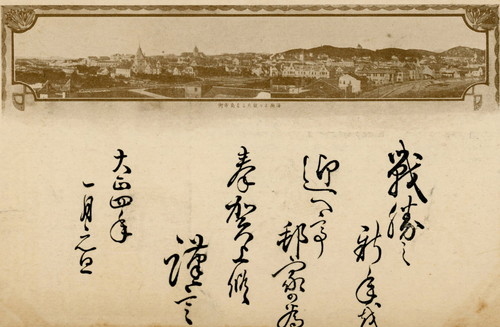 戰勝之
新年を
迎へ
邦家の為
奉賀上候
謹言
大正四年
一月元旦